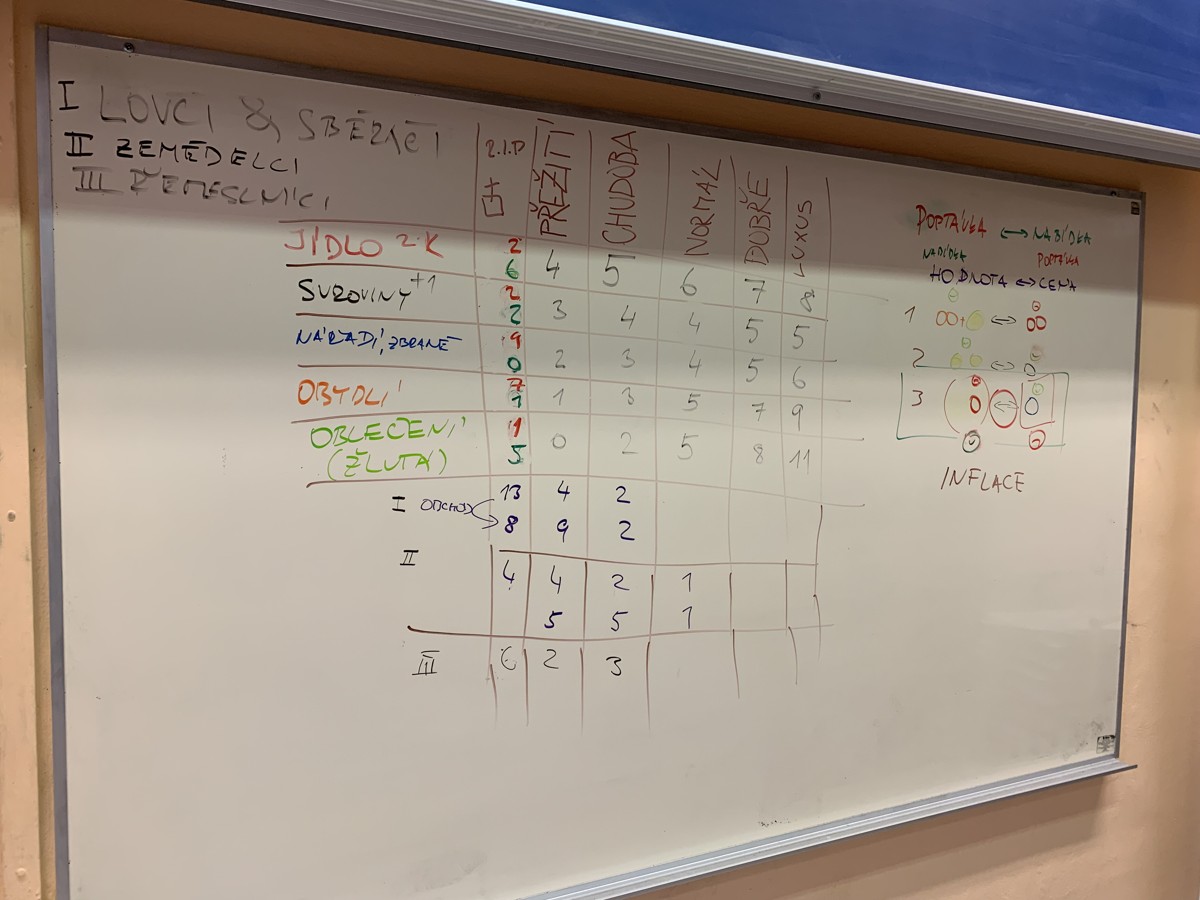 I LOVCI & SBĚRAČI
II ZEMĚDELCI
III ŘEMESLNÍCI
PŘEŽITÍ CHUDOBA NORMÁL DOBŘE LUXUS
JÍDLO 2.K 2
6 4 5 6 7 8
SUROVINY +1 2
2 3 4 4 5 5
NÁŘADÍ, ZBRANĚ 9
0 2 3 4 5 6
OBYDLÍ 7
1 1 3 5 7 9
OBLEČENÍ 1
(ŽLUTÁ) 5 0 2 5 8 11
I OBCHOD 13 4 2
8 9 2
II 4 4 2 1
5 5 1
III 6 2 3
POPTÁVKA ↔ NABÍDKA
NABÍDKA POPTÁVKA
HODNOTA ↔ CENA
1
2
3
INFLACE